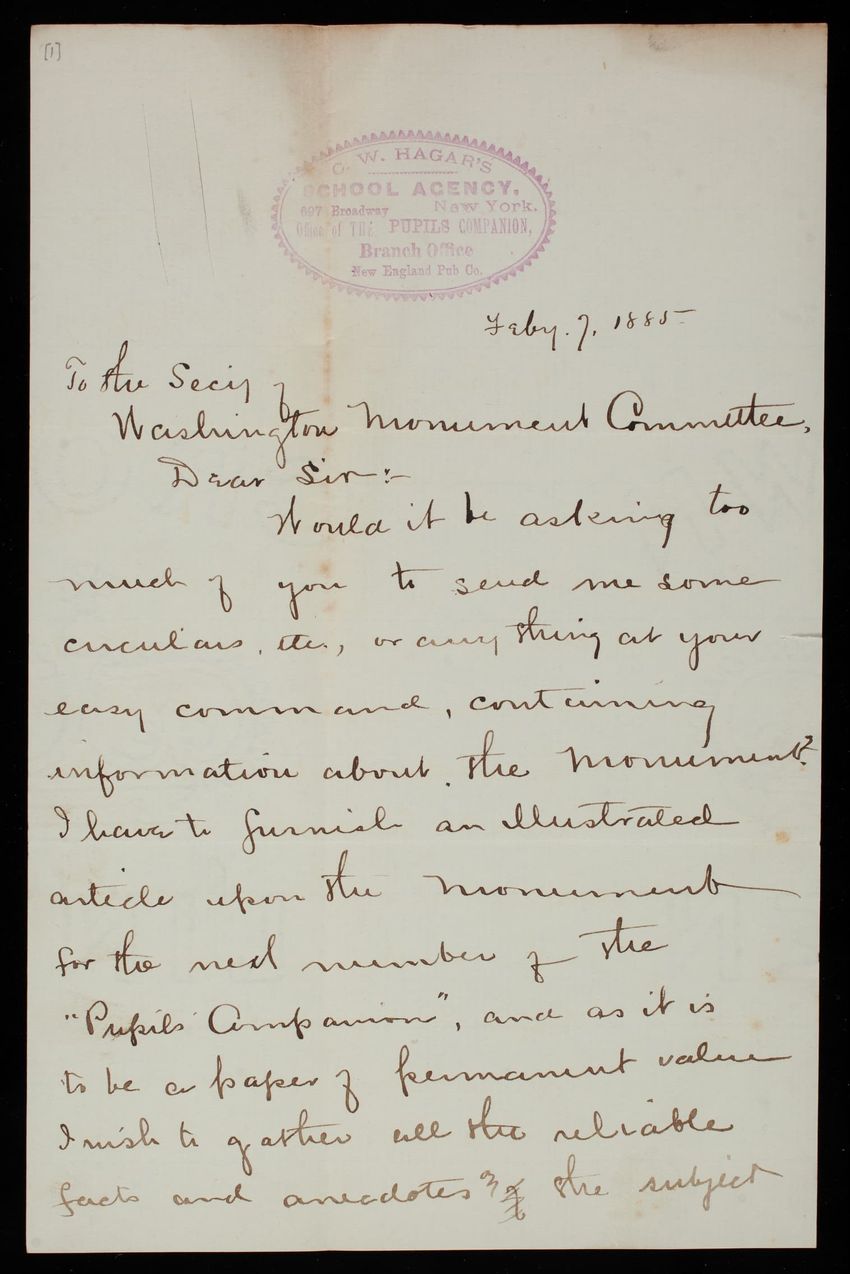 [1]
C. W. HAGAR'S
SCHOOL AGENCY.
697 Broadway New York.
Office of THE PUPILS COMPANION,
Branch Office
New England Pub Co.
Feby. 7, 1885
To the Secy of
Washington Monument Committee,
Dear Sir:-
Would it be asking too
much of you to send me some
circulars, etc., or any thing at your
easy command, containing
information about the Monument?
I have to furnish an illustrated
article upon the Monument
for the next number of the
"Pupils' Companion", and as it is
to be a paper of permanent value
I wish to gather all the reliable
facts and anecdotes of the subject